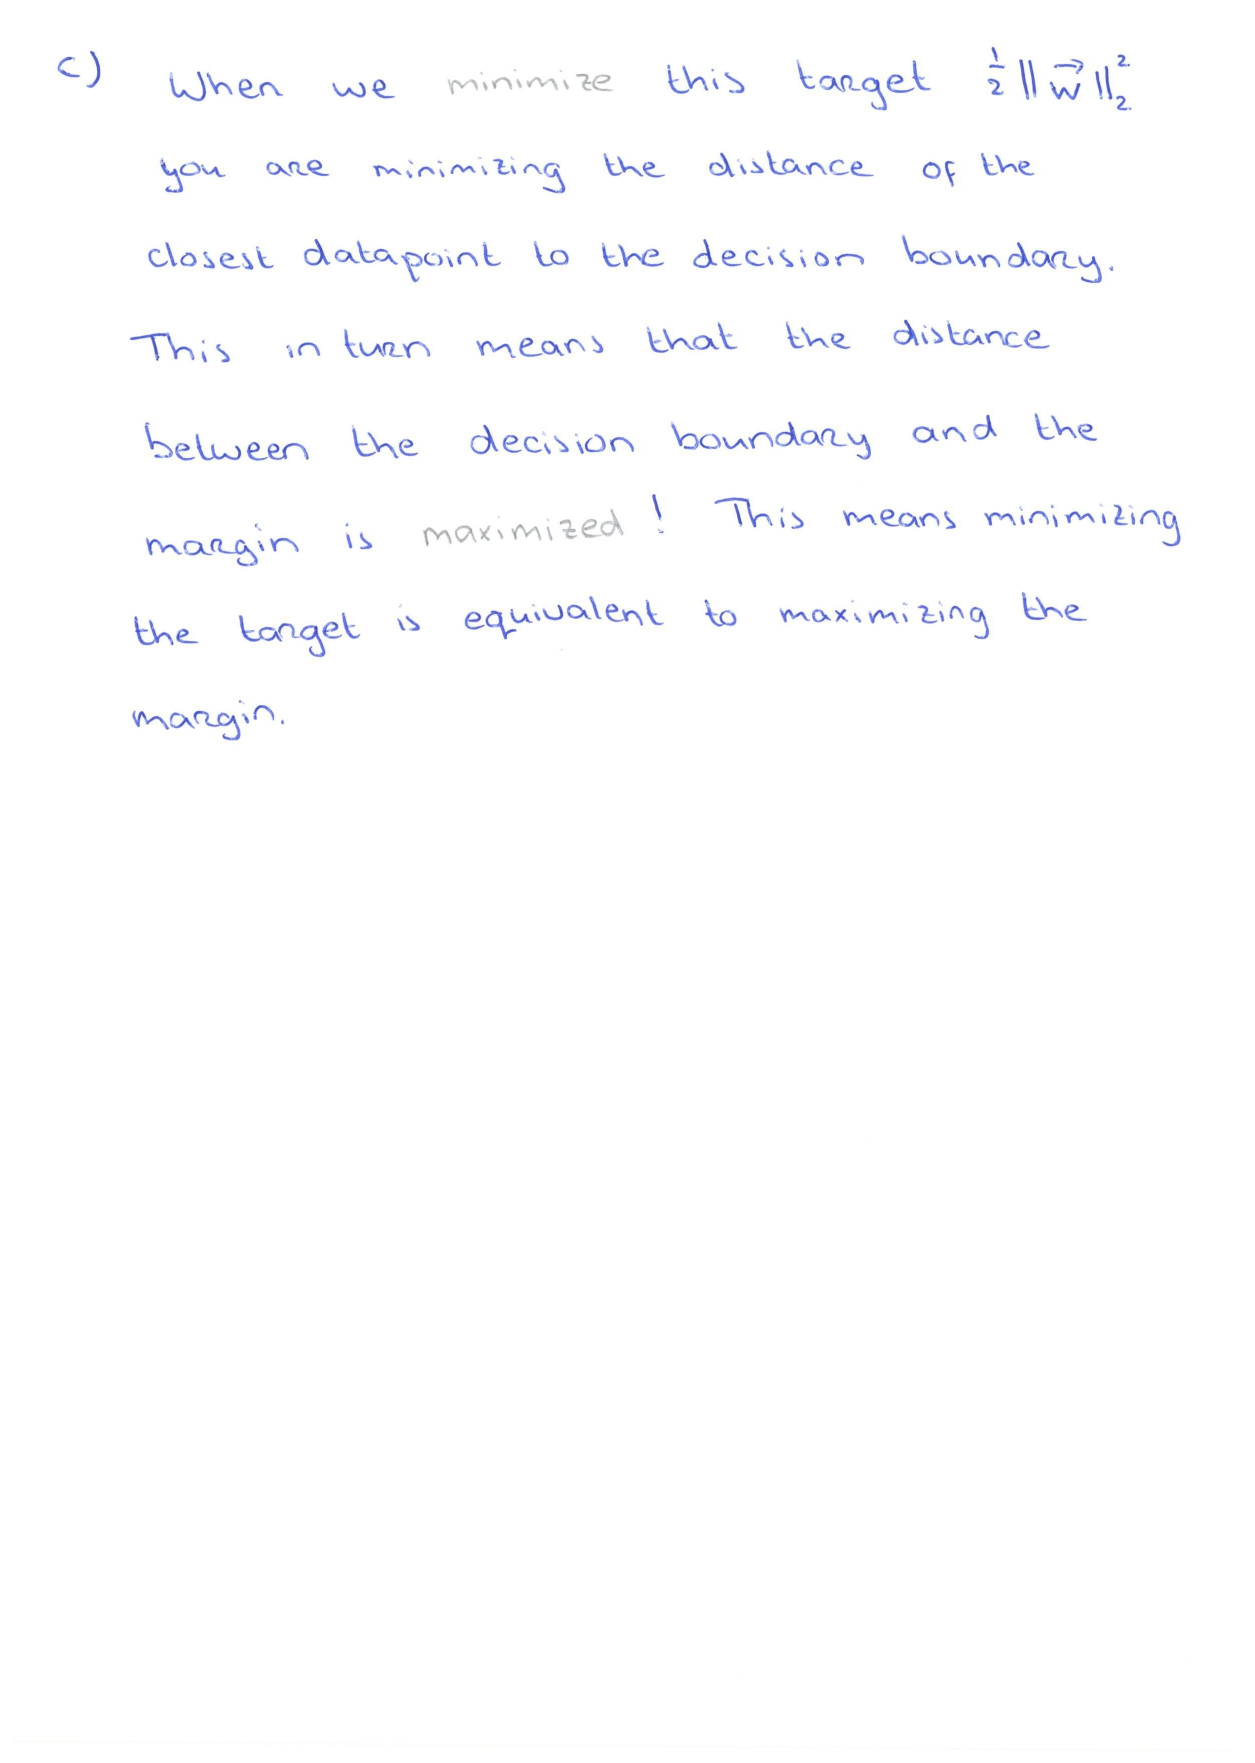 c) When we minimize this target ½ ||w⃗||₂²
you are minimizing the distance of the
closest datapoint to the decision boundary.
This in turn means that the distance
between the decision boundary and the
margin is maximized! This means minimizing
the target is equivalent to maximizing the
margin.